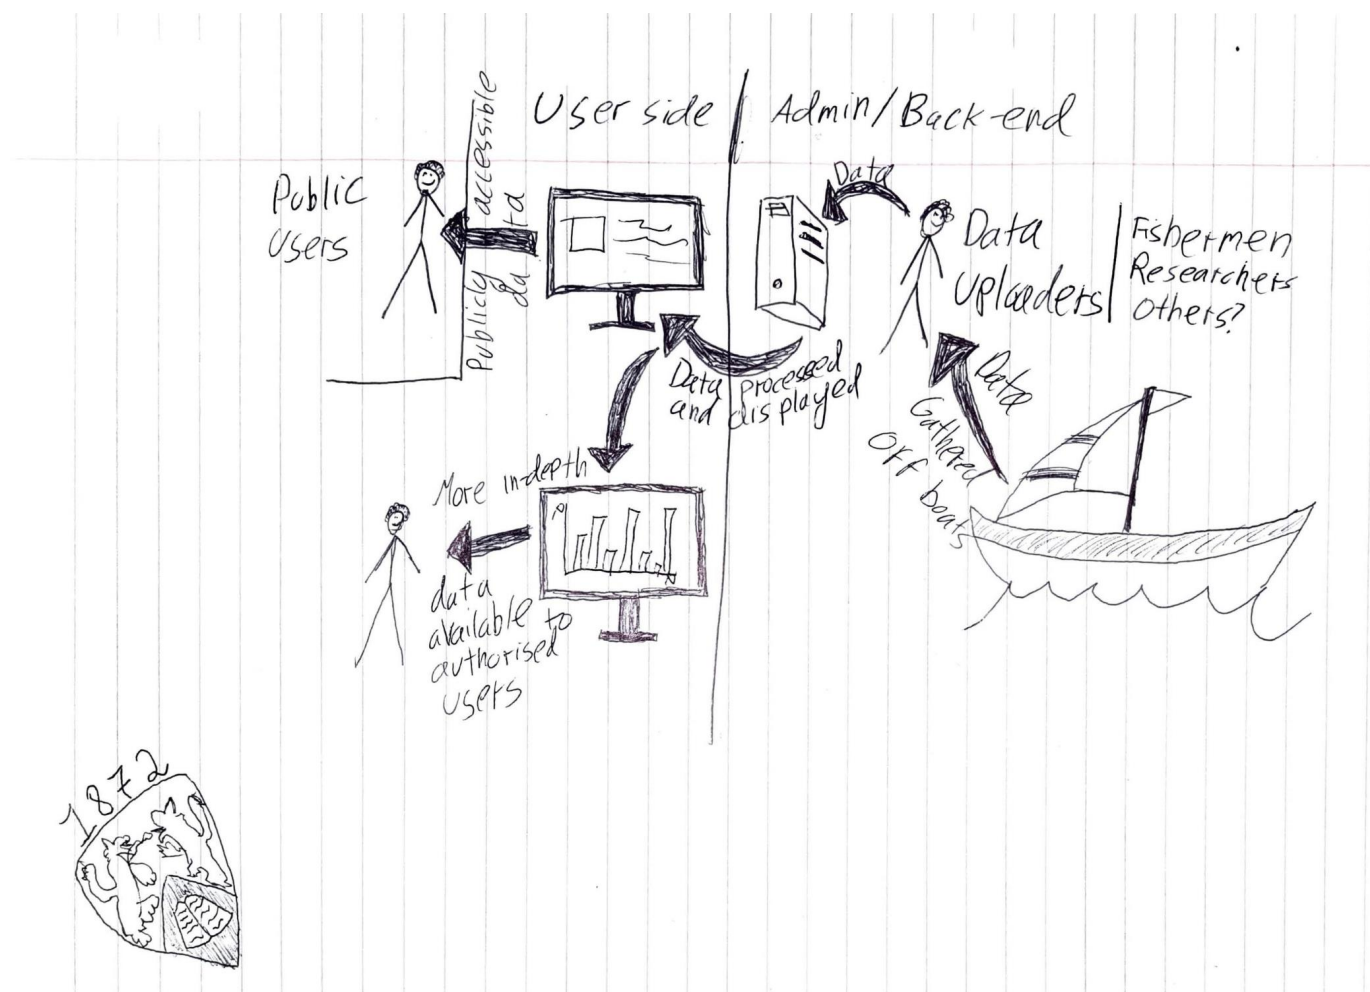 User side
Admin/Back-end
Public
Users
Publicly accessible
data
Data
Data
Uploaders
Fishermen
Researchers
Others?
Data processed
and displayed
Data
Gathered
Off boats
More in-depth
data
available to
authorised
users
1872